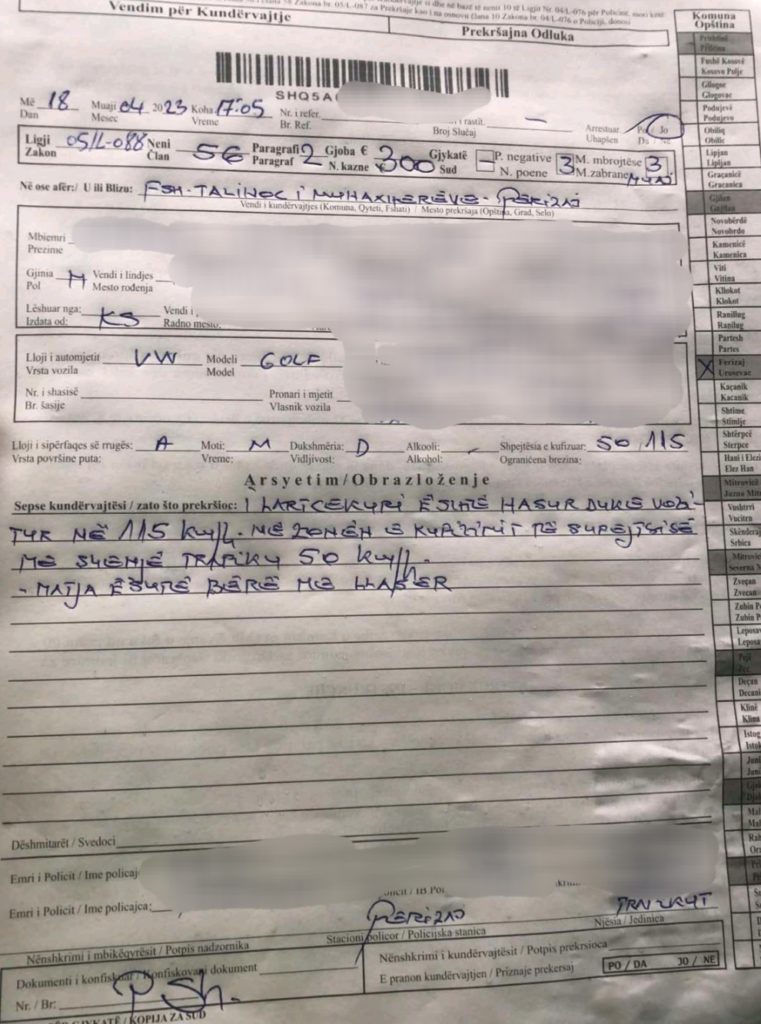 Vendim për Kundërvajtje
Prekršajna Odluka
SHQ5A
Më 18 Muaji 04 2023 Koha 17:05 Nr. i refer. Arrestuar Po / Jo
Dan Mesec Vreme Br. Ref. Broj Slučaj Uhapšen Da / Ne
Ligji 05/L-088 Neni 56 Paragrafi 2 Gjoba € 300 Gjykatë P. negative 3 M. mbrojtëse 3
Zakon Član Paragraf N. kazne Sud N. poene M. zabrane MUAJ
Në ose afër:/ U ili Blizu: FSH-TALINOC I MUHAXHERËVE - FERIZAJ
Vendi i kundërvajtjes (Komuna, Qyteti, Fshati) / Mesto prekršaja (Opština, Grad, Selo)
Mbiemri
Prezime
Gjinia M Vendi i lindjes
Pol Mesto rođenja
Lëshuar nga: KS Vendi i
Izdata od: Radno mesto:
Lloji i automjetit VW Modeli GOLF
Vrsta vozila Model
Nr. i shasisë Pronari i mjetit
Br. šasije Vlasnik vozila
Lloji i sipërfaqes së rrugës: A Moti: M Dukshmëria: D Alkooli: - Shpejtësia e kufizuar: 50 / 115
Vrsta površine puta: Vreme: Vidljivost: Alkohol: Ograničena brezina:
Arsyetim/Obrazloženje
Sepse kundërvajtësi / zato što prekršioc: I LARTCEKURI ËSHTË HASUR DUKE VOZI
TUR NË 115 KM/h. NË ZONËN E KUFIZIMIT TË SHPEJTSISË
ME SHENJË TRAFIKU 50 KM/h.
- MATJA ËSHTË BËRË ME LLASER
Dëshmitarët / Svedoci
Emri i Policit / Ime policaj
Emri i Policit / Ime policajca:
FERIZAJ
Nënshkrimi i mbikëqyrësit / Potpis nadzornika Stacioni policor / Policijska stanica Njësia / Jedinica
Dokumenti i konfiskuar / Konfiskovani dokument Nënshkrimi i kundërvajtësit / Potpis prekrsioca
Nr. / Br: P.Sh. E pranon kundërvajtjen / Priznaje prekersaj PO / DA JO / NE
KOPIJA ZA SUD
Komuna
Opština
Prishtinë
Priština
Fushë Kosovë
Kosovo Polje
Gllogoc
Glogovac
Podujevë
Podujevo
Obiliq
Obilić
Lipjan
Lipljan
Graçanicë
Gracanica
Gjilan
Gnjilan
Novobërdë
Novobrdo
Kamenicë
Kamenica
Viti
Vitina
Kllokot
Klokot
Ranillug
Ranilug
Partesh
Partes
X Ferizaj
Urosevac
Kaçanik
Kacanik
Shtime
Stimlje
Shtërpcë
Sterpce
Hani i Elezi
Elez Han
Mitrovicë
Vushtrri
Vucitrn
Skënderaj
Srbica
Mitrovicë
Severna M
Zveçan
Zvecan
Zubin P
Zubin P
Leposa
Leposa
Pejë
Deçan
Decani
Klinë
Klina
Istog
Istok
Juni
Juni